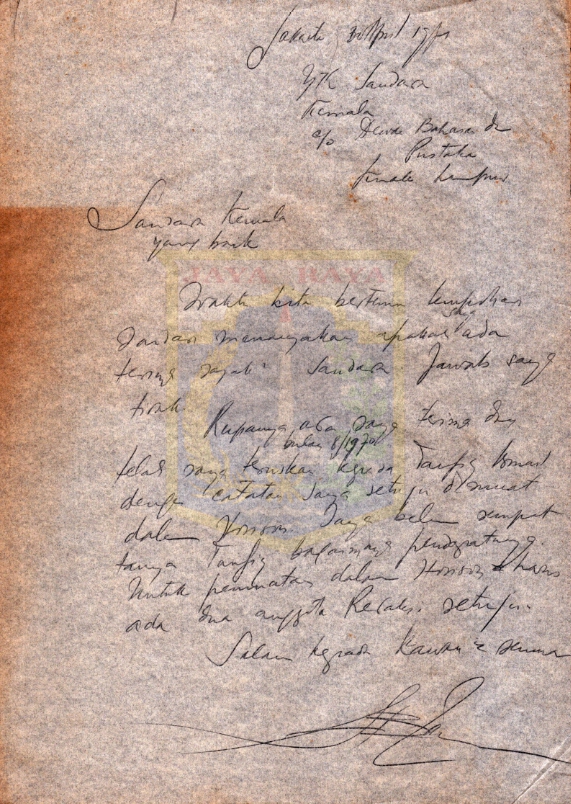 Jakarta, 30 April 1971
Ytk Saudara
Kemala
c/o Dewan Bahasa dn
Pustaka
Kuala Lumpur.
Saudara Kemala
yang baik
JAYA RAYA
Waktu kita bertemu tempohari
Saudara menanyakan apakah ada saya
terima sajak² Saudara. Jawab saya
tidak.
Rupanya ada saya terima dan
bulan 8/1970
telah saya teruskan kepada Taufiq Ismail
dengan catatan saya setuju dimuat
dalam Horison. Saya belum sempat
tanya Taufiq bagaimana pendapatnya.
Untuk pemuatan dalam Horison harus
ada dua anggota Redaksi setuju.
Salam kepada kawan² semua